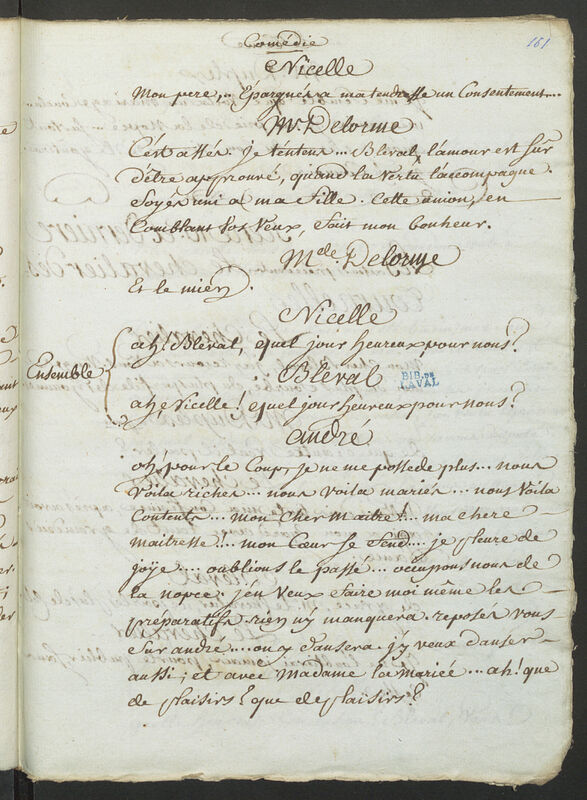 Comédie
161
Nicelle
Mon pere, Epargnés a ma tendresse un Consentement...
Mr. Delorme
C'est assés. je t'entens... Bleval, l'amour est sur
d'être approuvé, quand la vertu l'accompagne.
Soyés uni a ma fille. Cette union, en
Comblant vos veux, fait mon bonheur.
Mde. Delorme
Et le mien.
Nicelle
ah! Bleval, quel jour heureux pour nous!
Ensemble
Bleval
BIB. DE
LAVAL
ah Nicelle! quel jour heureux pour nous!
andré
oh! pour le Coup, je ne me possede plus... nous
voila riches... nous voila mariés... nous voila
Contents... mon cher maitre!... ma chere
maitresse!... mon Cœur se fend... je pleure de
joye... oublions le passé... occupons nous de
la nopce; j'en veux faire moi même les
préparatifs. rien n'y manquera. reposés vous
sur andre... on y dansera j'y veux danser
aussi; et avec Madame la Mariée... ah! que
de plaisirs! que de plaisirs!